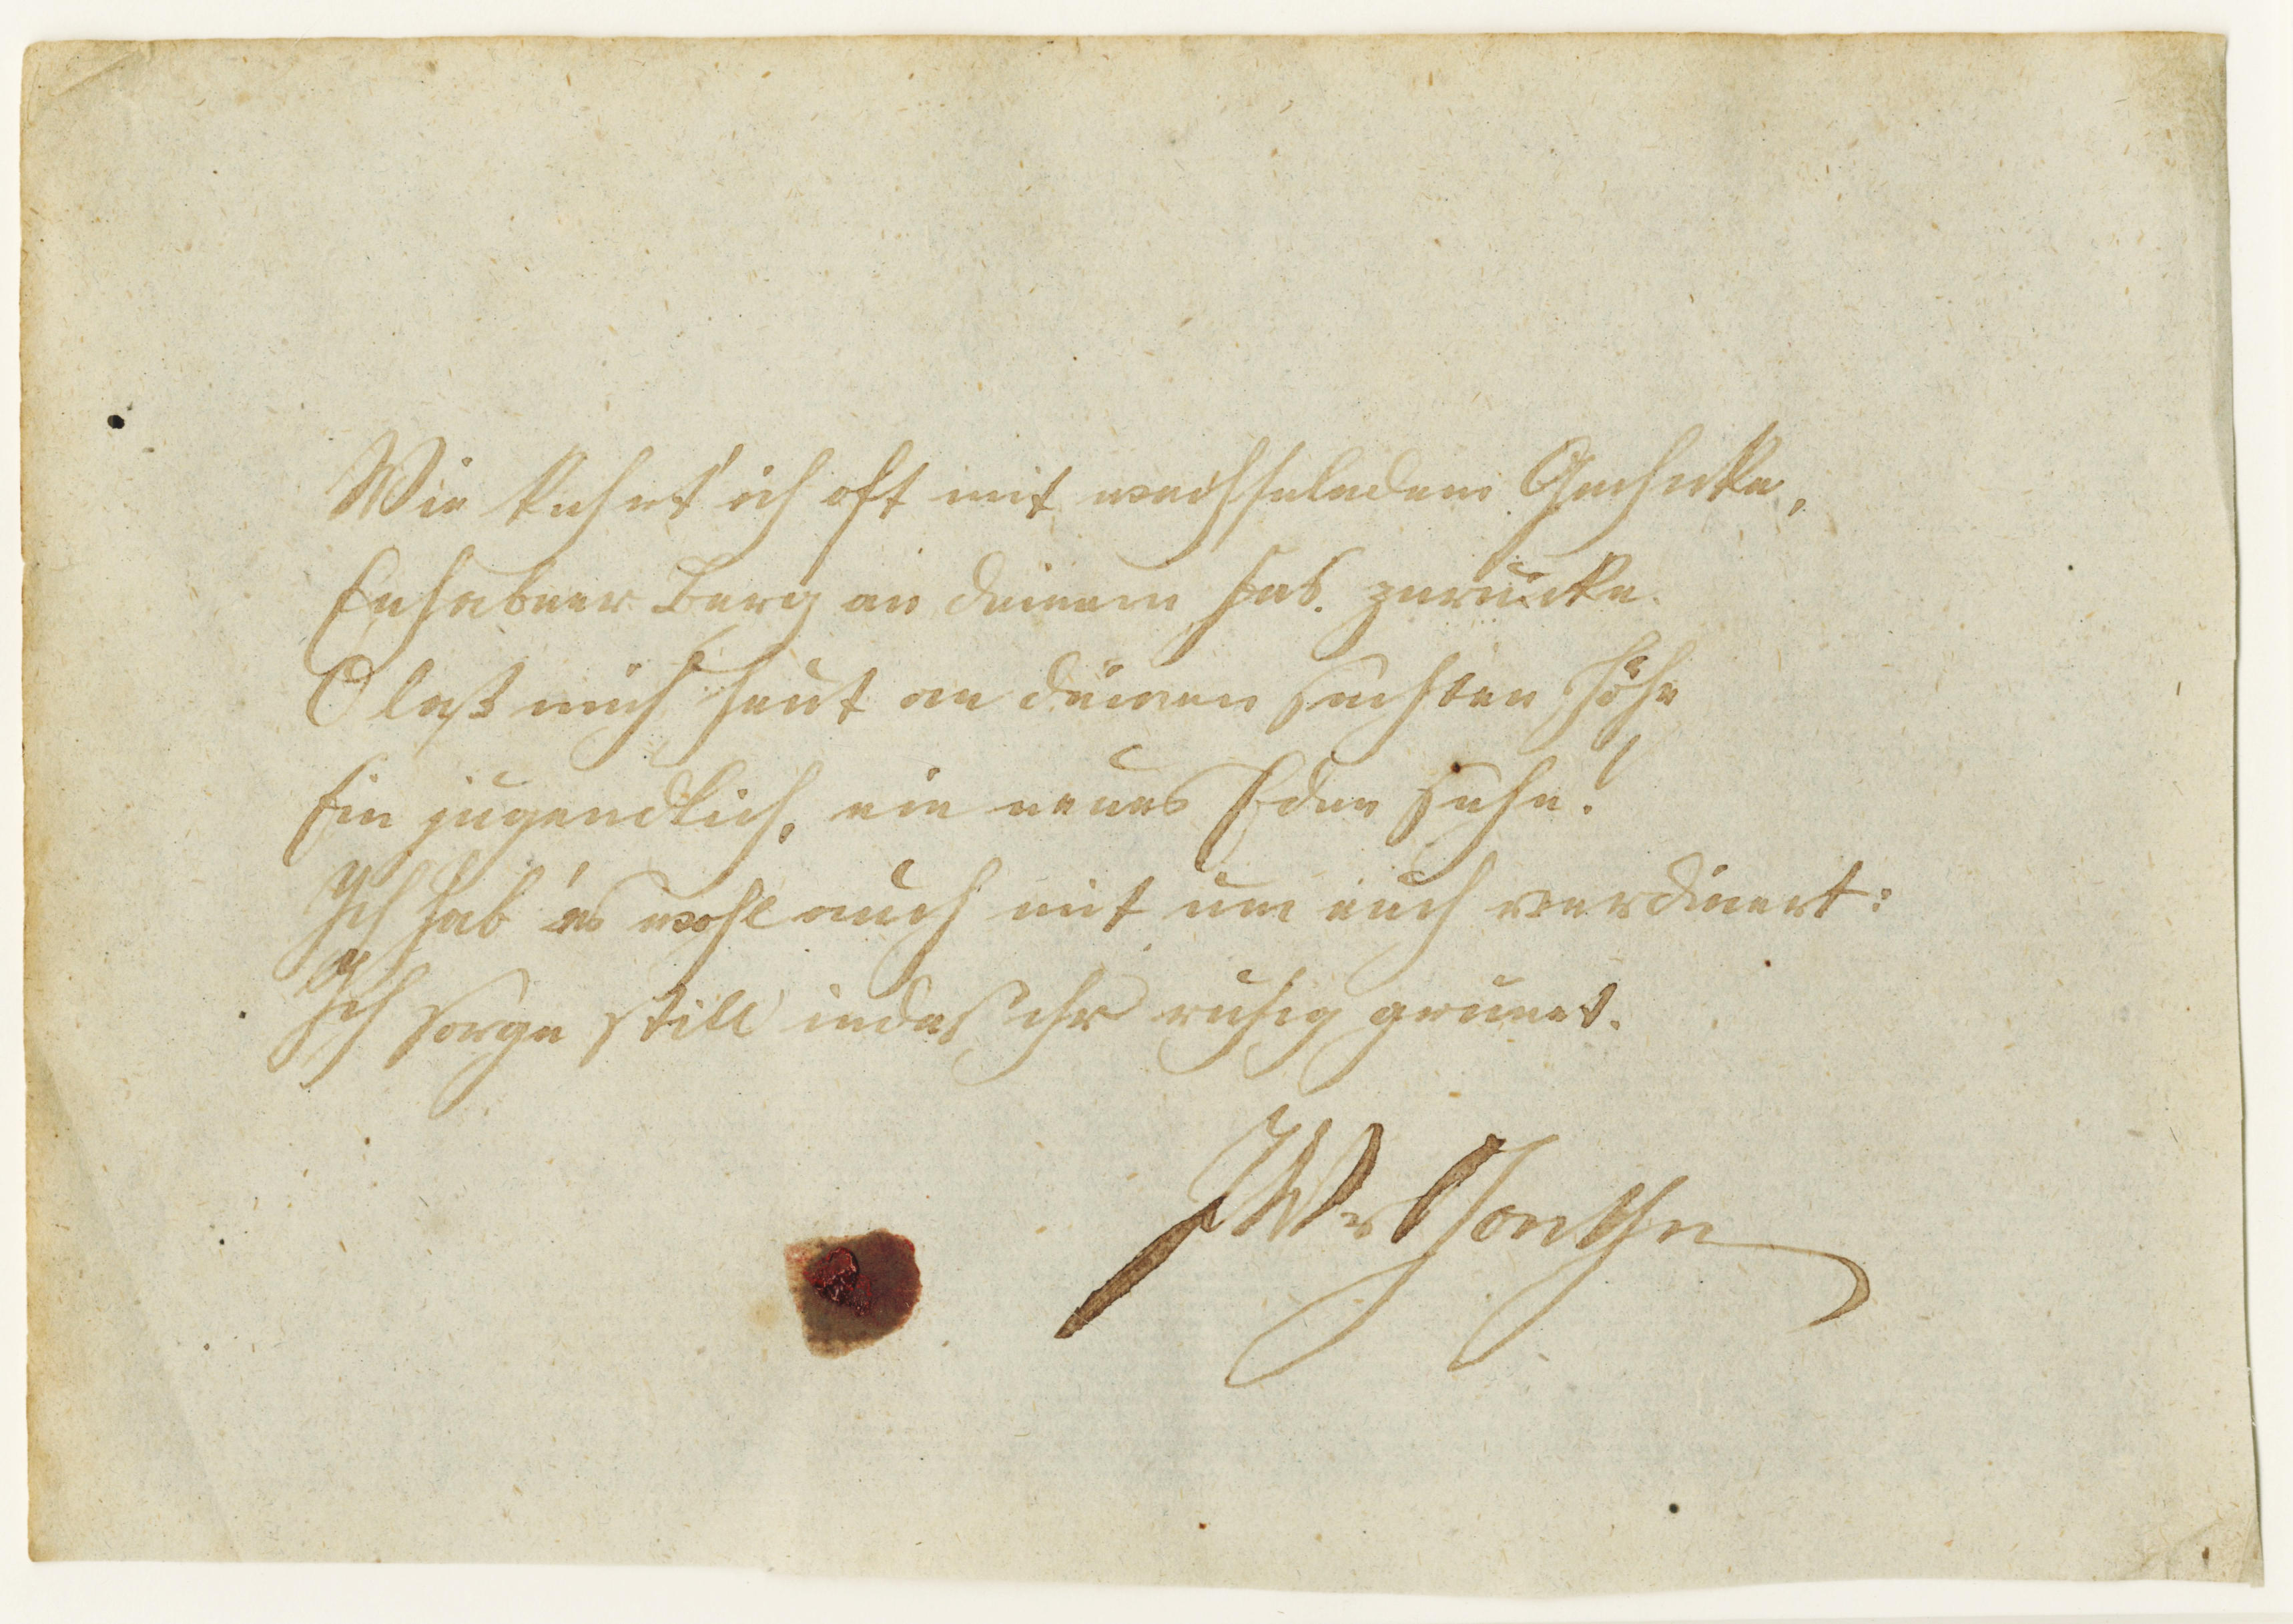 Wie kehrt' ich oft mit wechselndem Geschicke,
Erhabner Berg an deinen Fus. zurücke.
O laß mich heut an deinen sachten Höhn
Ein jugendlich, ein neues Eden sehn!
Ich hab' es wohl auch mit um euch verdienet:
Ich sorge still indeß ihr ruhig grünet.
JWvGoethe